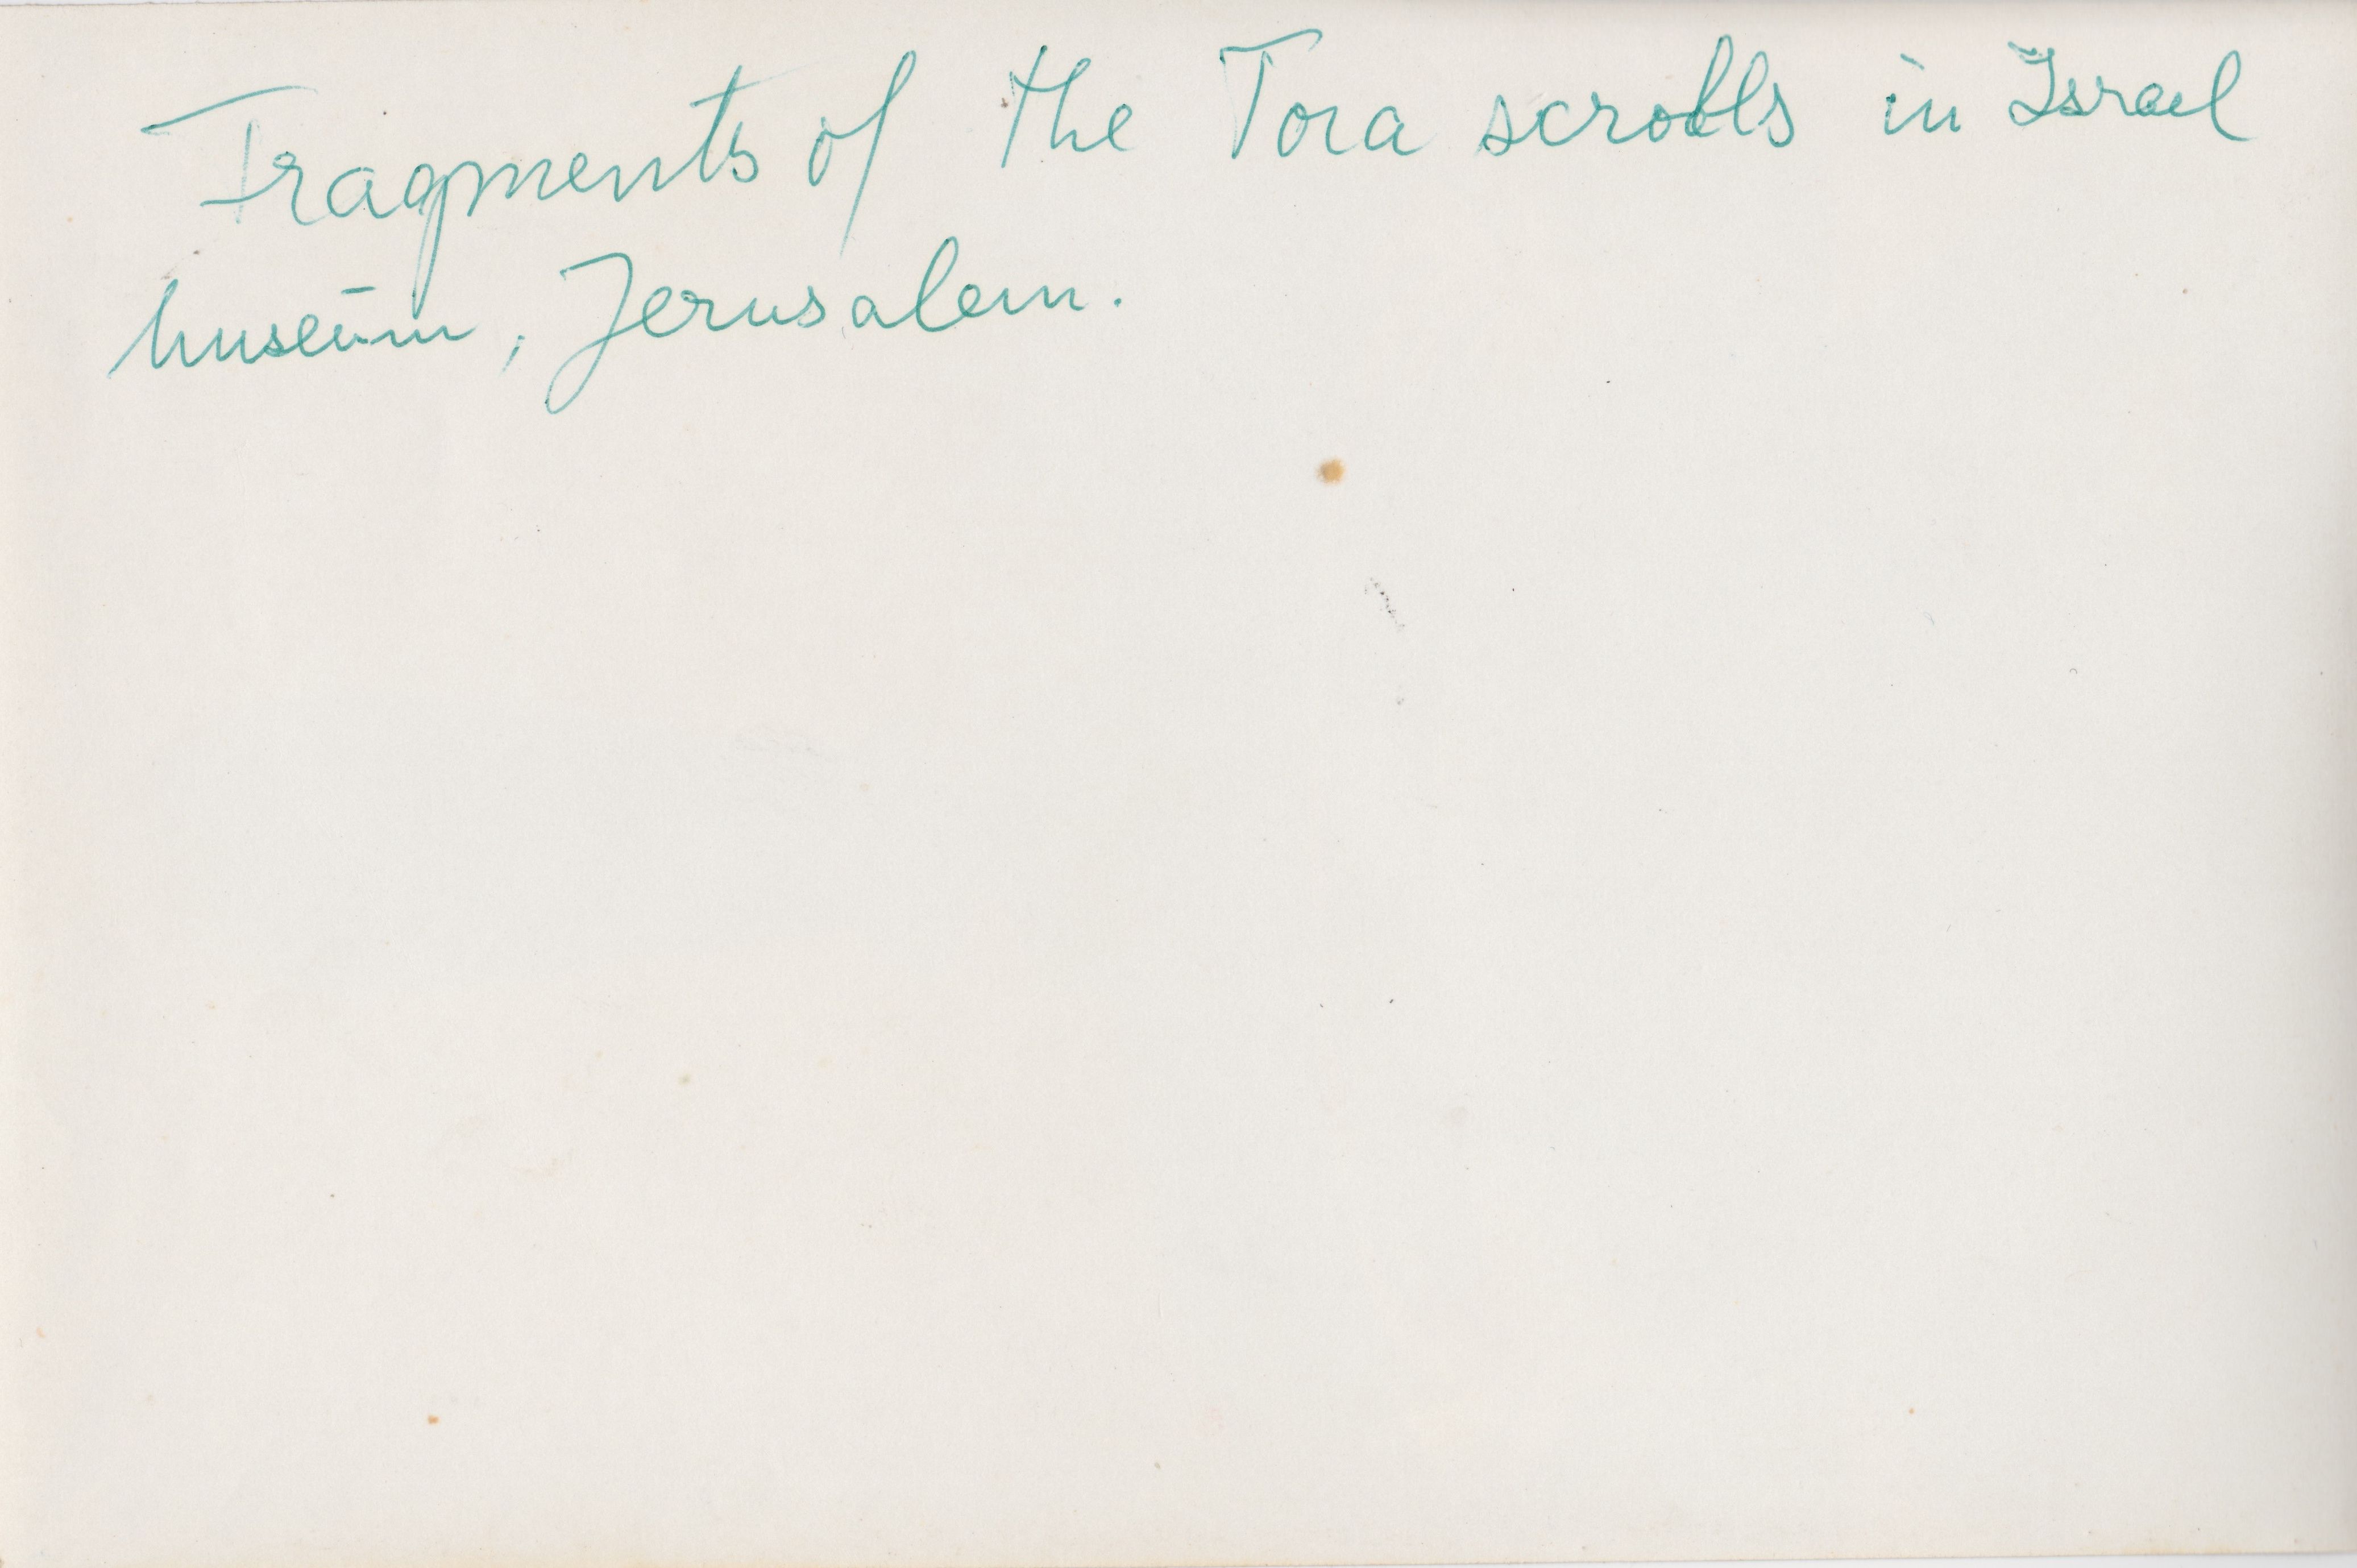 Fragments of the Tora scrolls in Israel
museum, Jerusalem.